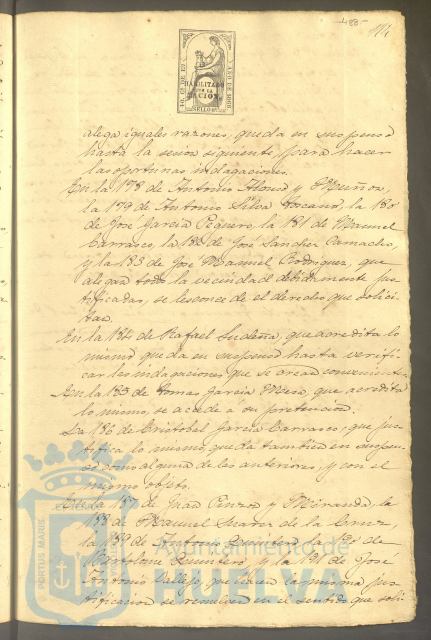 488
114
HABILITADO
POR LA
NACION.
AÑO DE 1868
SELLO
alega iguales razones, queda en suspenso
hasta la sesion siguiente, para hacer
las oportunas indagaciones.
En la 178 de Antonio Alonso y Muñoz,
la 179 de Antonio Silva Toscano, la 180
de José Garcia Peguero, la 181 de Manuel
Carrasco, la 182 de José Sanchez Camacho,
y la 183 de José Manuel Rodriguez, que
alegan todo la vecindad debidamente jus
tificadas, se les concede el derecho que solici
tan.
En la 184 de Rafael Sudeña, que acredita lo
mismo queda en suspenso hasta verifi
car las indagaciones que se crean convenientes
En la 185 de Tomas Garcia Mesa, que acredita
lo mismo, se accede a su pretencion.
La 186 de Cristobal Garcia Carrasco, que jus
tifica lo mismo, queda tambien en suspen
so como alguna de las anteriores, y con el
mismo objeto.
En la 187 de Juan y Miranda, la
188 de Manuel Suarez de la Cruz,
la 189 de Antonio Quintero la 190 de
Bartolome Quintero y la 191 de José
Antonio Vallejo, que hacen la misma jus
tificacion se resuelven en el sentido que soli
PORTUS MARIS
Ayuntamiento de
HUELVA